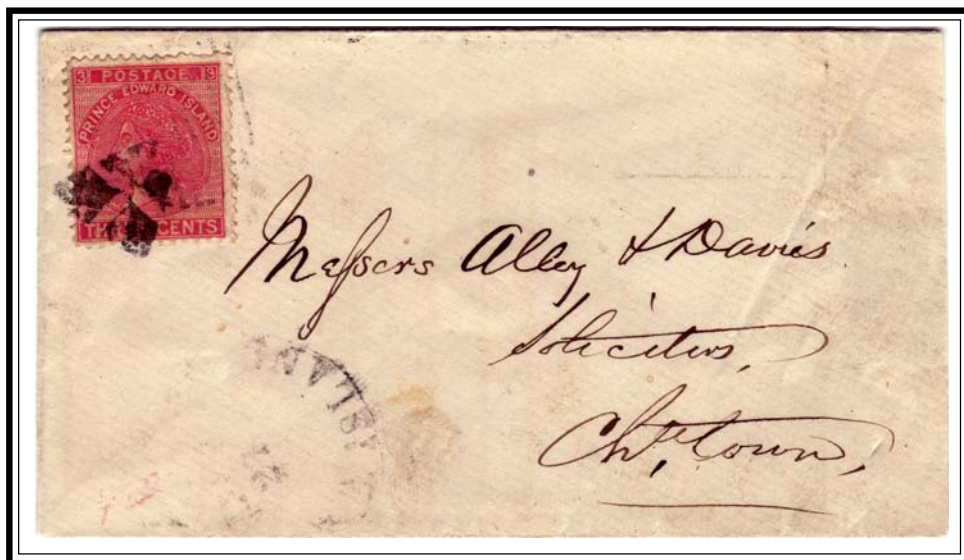 3 POSTAGE 3
PRINCE EDWARD ISLAND
CENTS
Messers Alley & Davies
Solicitors,
Ch, town,
21